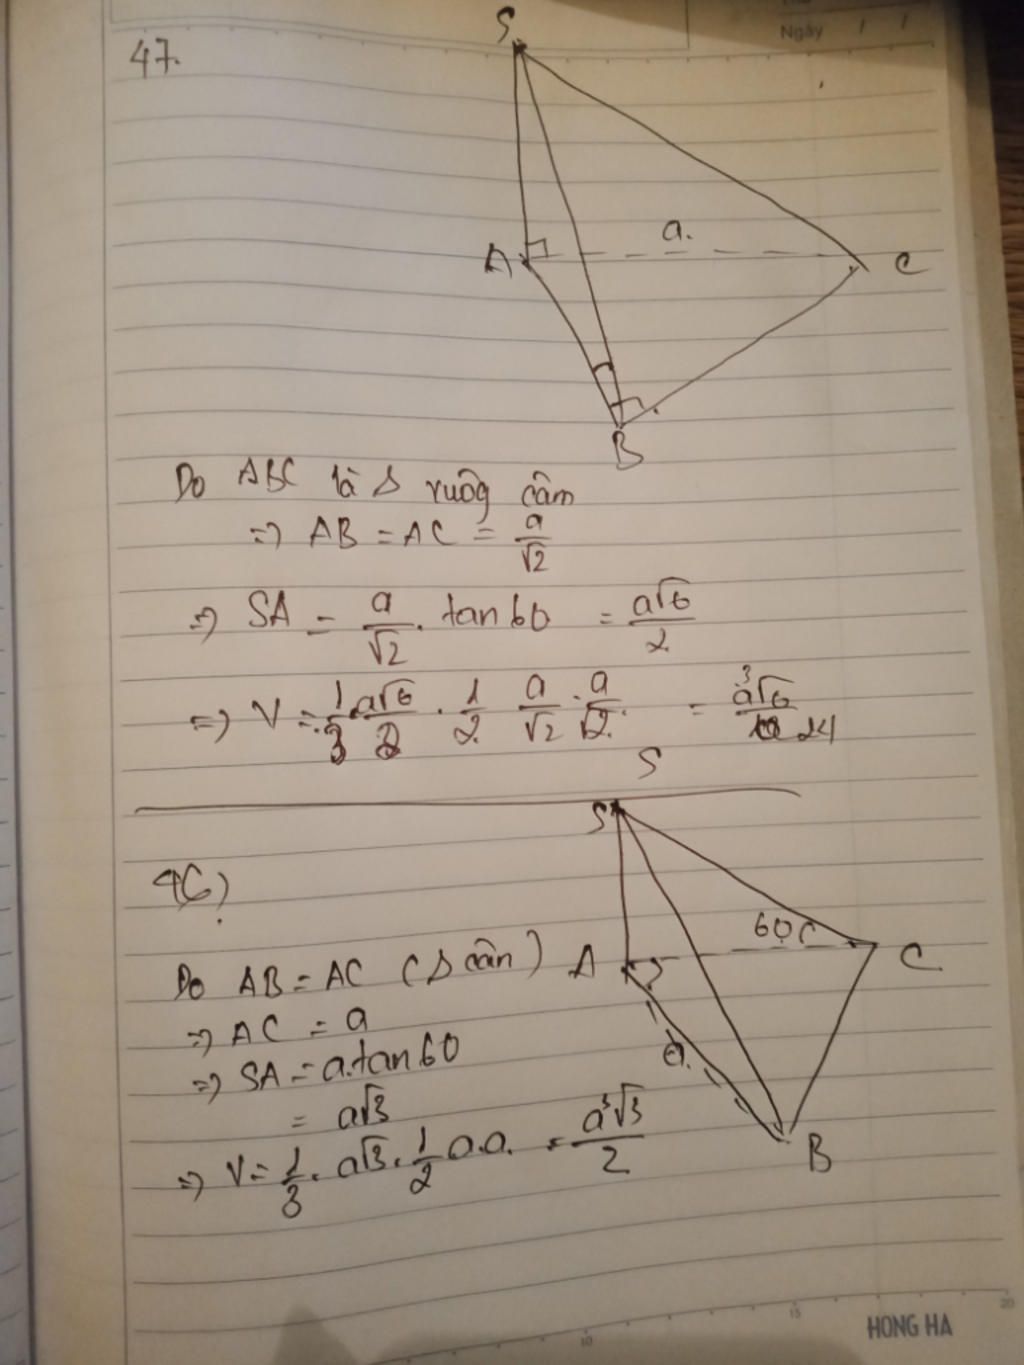 Ngày / /
47.
S
a.
A
C
B
Do ABC là Δ vuôg câm
=> AB = AC = a/√2
=> SA = a/√2 . tan 60 = a√6/2
=> V = 1/3 . a√6/2 . 1/2 a/√2 . a/√2 = a³√6/24
S
S
46)
60°
Do AB = AC (Δ cân)
A
C
=> AC = a
=> SA = a.tan 60
a.
= a√3
=> V = 1/3 . a√3 . 1/2 a.a. = a³√3/2
B
10 15 20
HONG HA